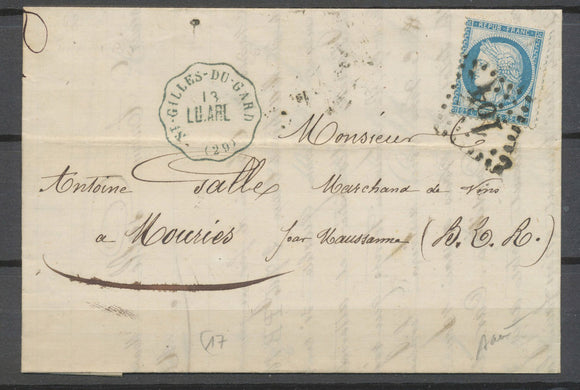 REPUB · FRANC ·
ST-GILLES-DU-GARD
13
LU.ARL
(29)
Monsieur
Antoine Salle Marchand de Vins
a Mouriès par Maussanne (B. D. R.)
17